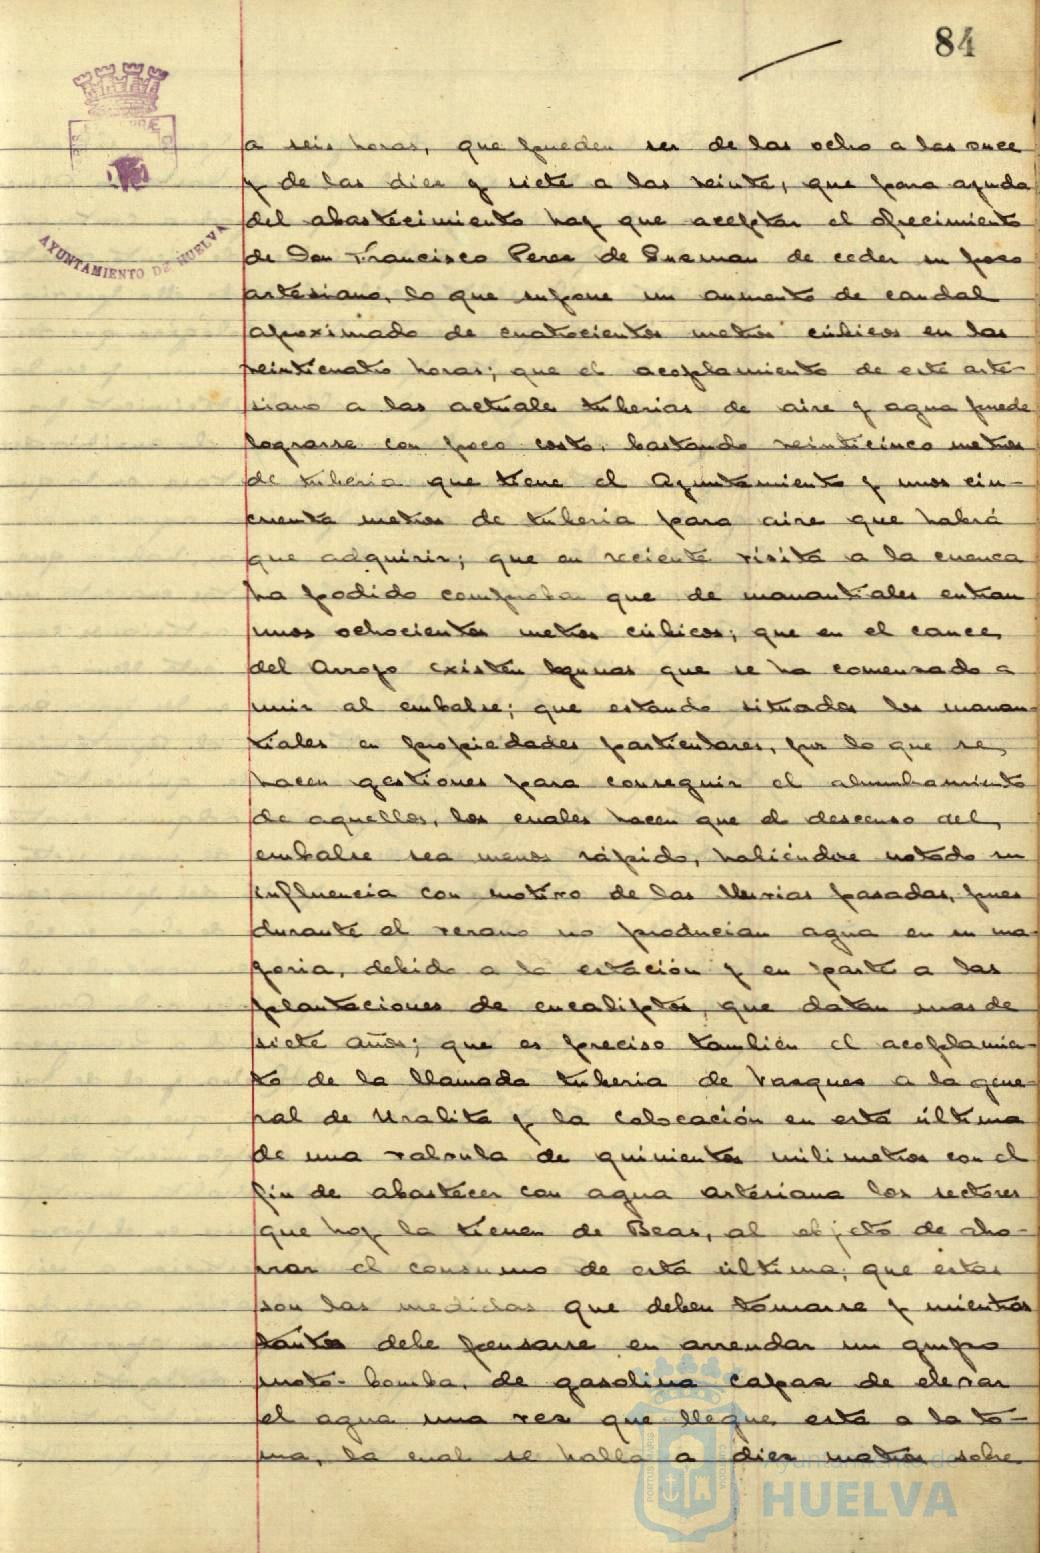 84
AYUNTAMIENTO DE HUELVA
a seis horas, que pueden ser de las ocho a las once
y de las diez y siete a las veinte, que para ayuda
del abastecimiento hay que aceptar el ofrecimiento
de Don Francisco Perez de Guzman de ceder su pozo
artesiano, lo que supone un aumento de caudal
aproximado de cuatrocientos metros cúbicos en las
veinticuatro horas; que el acoplamiento de este arte-
siano a las actuales tuberias de aire y agua puede
lograrse con poco costo, bastando veinticinco metros
de tuberia que tiene el Ayuntamiento y unos cin-
cuenta metros de tuberia para aire que habrá
que adquirir; que en reciente visita a la cuenca
ha podido comprobar que de manantiales entran
unos ochocientos metros cúbicos; que en el cauce
del Arroyo existen lagunas que se ha comenzado a
unir al embalse; que estando situados los manan-
tiales en propiedades particulares, por lo que se
hacen gestiones para conseguir el alumbramiento
de aquellos, los cuales hacen que el descenso del
embalse sea menos rápido, habiéndose notado su
influencia con motivo de las lluvias pasadas, pues
durante el verano no producian agua en su ma-
yoria, debido a la estación y en parte a las
plantaciones de eucaliptos, que datan mas de
siete años; que es preciso también el acoplamien-
to de la llamada tuberia de Vazquez a la gene-
ral de Uralita y la colocación en esta última
de una valvula de quinientos milimetros con el
fin de abastecer con agua artesiana los sectores
que hoy la tienen de Beas, al objeto de aho-
rrar el consumo de esta última; que estas
son las medidas que deben tomarse y mientras
tanto debe pensarse en arrendar un grupo
moto-bomba, de gasolina capaz de elevar
el agua una vez que llegue esta a la to-
ma, la cual se halla a diez metros sobre
Ayuntamiento de
HUELVA